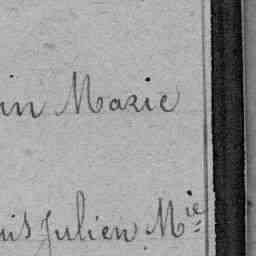 in Marie
uis Julien Mie